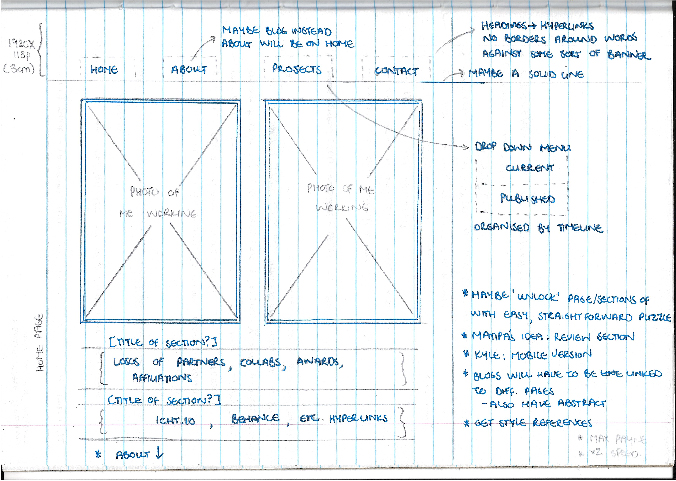 MAYBE BLOG INSTEAD
ABOUT WILL BE ON HOME
HEADINGS → HYPERLINKS
NO BORDERS AROUND WORDS
AGAINST SOME SORT OF BANNER
1920X
(3cm)
HOME
ABOUT
PROJECTS
CONTACT
MAYBE A SOLID LINE
PHOTO OF
ME WORKING
PHOTO OF ME
WORKING
DROP DOWN MENU
CURRENT
PUBLISHED
ORGANISED BY TIMELINE
HOME PAGE
[TITLE OF SECTION?]
LOGOS OF PARTNERS, COLLABS, AWARDS,
AFFILIATIONS
[TITLE OF SECTION?]
ITCH.IO, BEHANCE, ETC. HYPERLINKS
* ABOUT ↓
* MAYBE 'UNLOCK' PAGE/SECTIONS OF
WITH EASY, STRAIGHTFORWARD PUZZLE
IDEA: REVIEW SECTION
* KYLE: MOBILE VERSION
* BLOGS WILL HAVE TO BE LINKED
TO DIFF. PAGES
- ALSO HAVE ABSTRACT
* GET STYLE REFERENCES
* MAX PAYNE